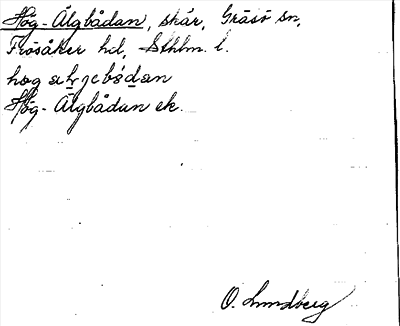 Hög-Älgbådan, skär, Gräsö sn,
Frösåker hd, Sthlm. l.
Hög-Älgbådan ek.
O. Lundberg